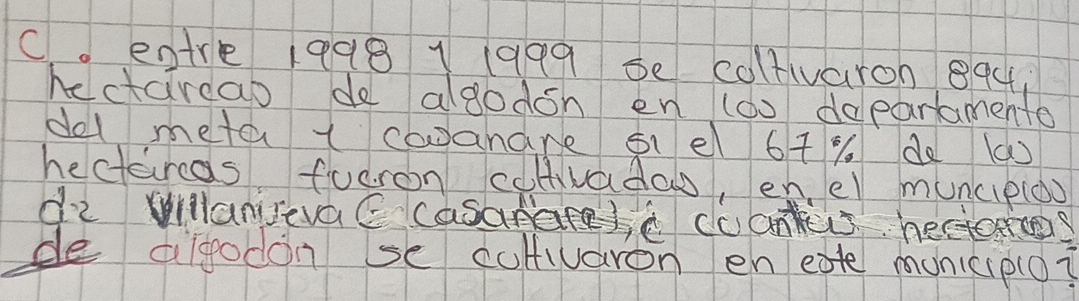 C. entre 1998 y 1999 se coltivaron 894
hectareas de algodón en los departamento
del meta y casanare si el 67% de las
hectáreas fueron coltivadas, en el muncipios
de Villanueva (casanare), ¿cuantas hectareas
de algodón se coltivaron en este municipio?